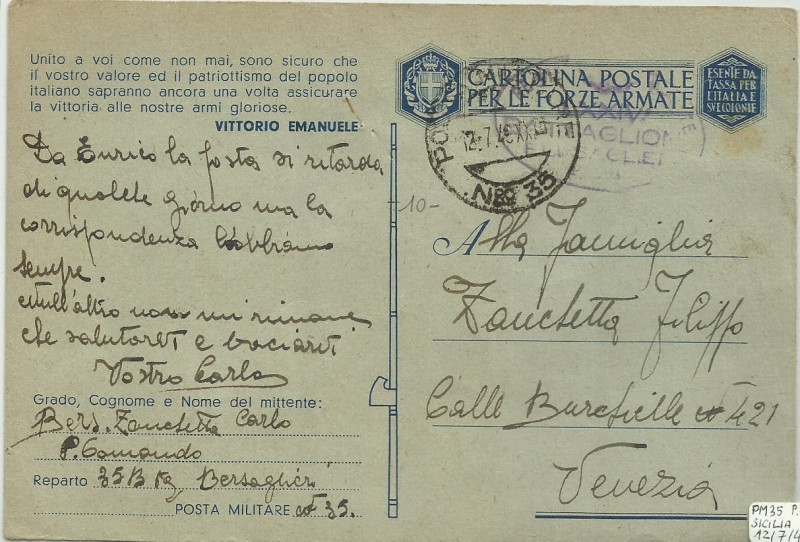 Unito a voi come non mai, sono sicuro che
il vostro valore ed il patriottismo del popolo
italiano sapranno ancora una volta assicurare
la vittoria alle nostre armi gloriose.
VITTORIO EMANUELE
Da Enrico la posta si ritarda
di qualche giorno ma la
corrispondenza l'abbiamo
sempre.
null'altro non mi rimane
che salutarvi e baciarvi
Vostro Carlo
Grado, Cognome e Nome del mittente:
Bers. Zanchetta Carlo
P. Comando
Reparto 35 Btg Bersaglieri
POSTA MILITARE N 35.
CARTOLINA POSTALE
PER LE FORZE ARMATE
ESENTE DA
TASSA PER
L'ITALIA E
SUE COLONIE
12.7.43 XXI
N° 35
BATTAGLIONE
10-
Alla Famiglia
Zanchetta Filippo
Calle Burchielle N 421
Venezia
PM35 P.
SICILIA
12/7/4